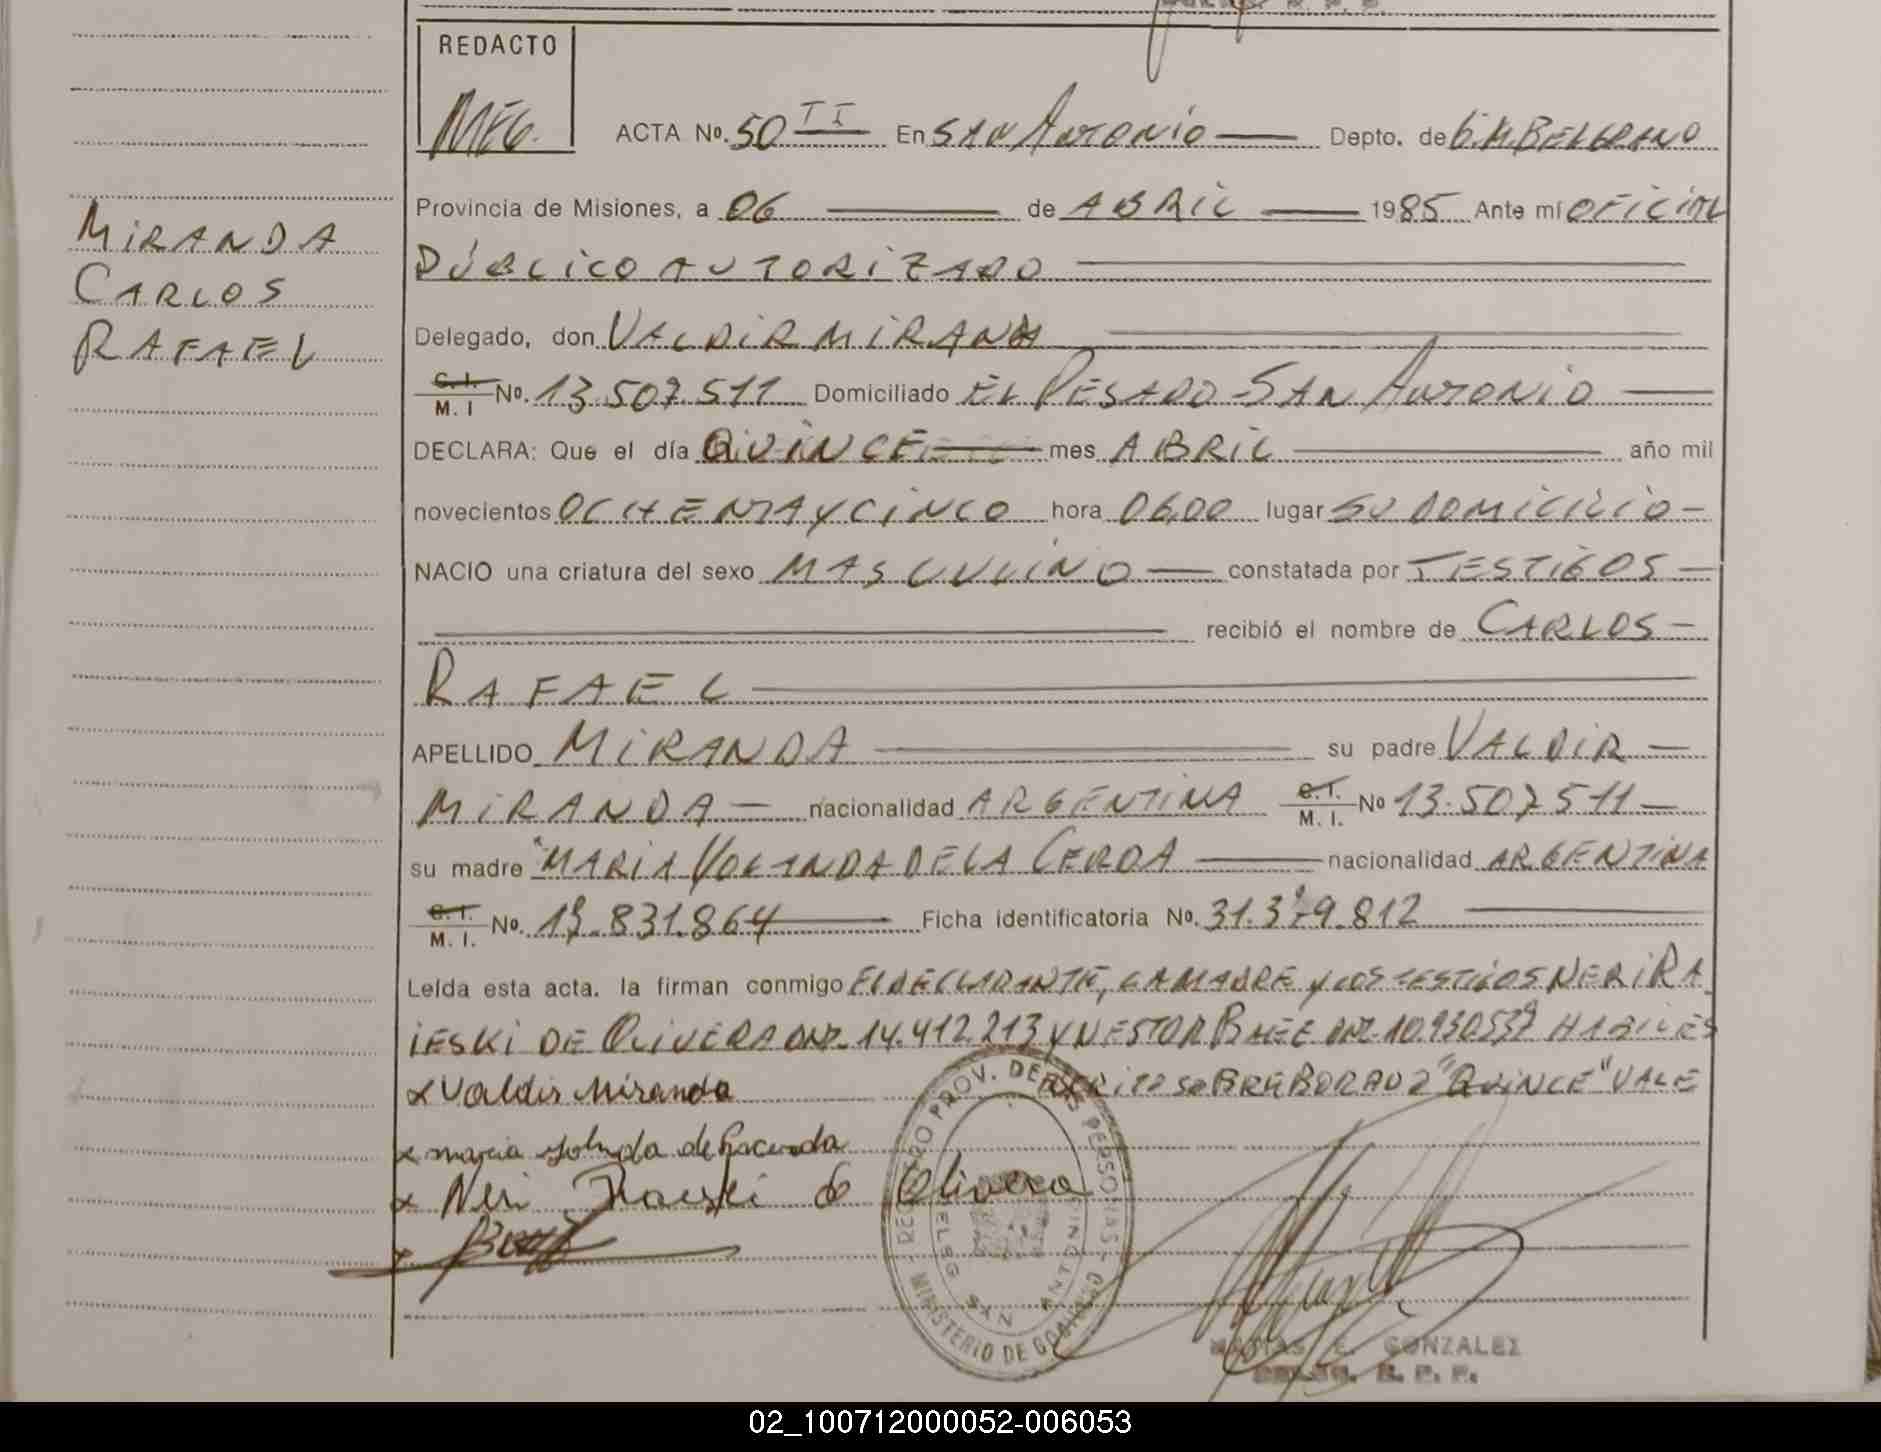 REDACTO
MEG.
ACTA No. 50 TI En SAN ANTONIO Depto. de G.M.BELGRANO
Provincia de Misiones, a 06 de ABRIL 1985 Ante mí OFICIAL
PÚBLICO AUTORIZADO
MIRANDA
CARLOS
RAFAEL
Delegado, don VALDIR MIRANDA
C. I.
M. I No. 13.507.511 Domiciliado EL PESADO-SAN ANTONIO
DECLARA: Que el día QUINCE mes ABRIL año mil
novecientos OCHENTA Y CINCO hora 06,00 lugar SU DOMICILIO-
NACIO una criatura del sexo MASCULINO constatada por TESTIGOS-
recibió el nombre de CARLOS-
RAFAEL
APELLIDO MIRANDA su padre VALDIR
MIRANDA nacionalidad ARGENTINA C.I.
M. I. No 13.507.511
su madre MARIA YOLANDA DE LA CERDA nacionalidad ARGENTINA
C.I.
M. I. No. 831.864 Ficha identificatoria No. 812
Leída esta acta. la firman conmigo EL DECLARANTE, LA MADRE y LOS TESTIGOS NERI RA
IESKI DE OLIVERA DNI. 14.412.213 Y NESTOR DNI. HABILES
SOBREBORRADO "QUINCE" VALE
x Valdir Miranda
x maria
x Neri de Olivera
x
REGISTRO PROV. DE LAS PERSONAS
MINISTERIO DE GOBIERNO
SAN ANTONIO
E. GONZALEZ
R. P. P.
02_100712000052-006053